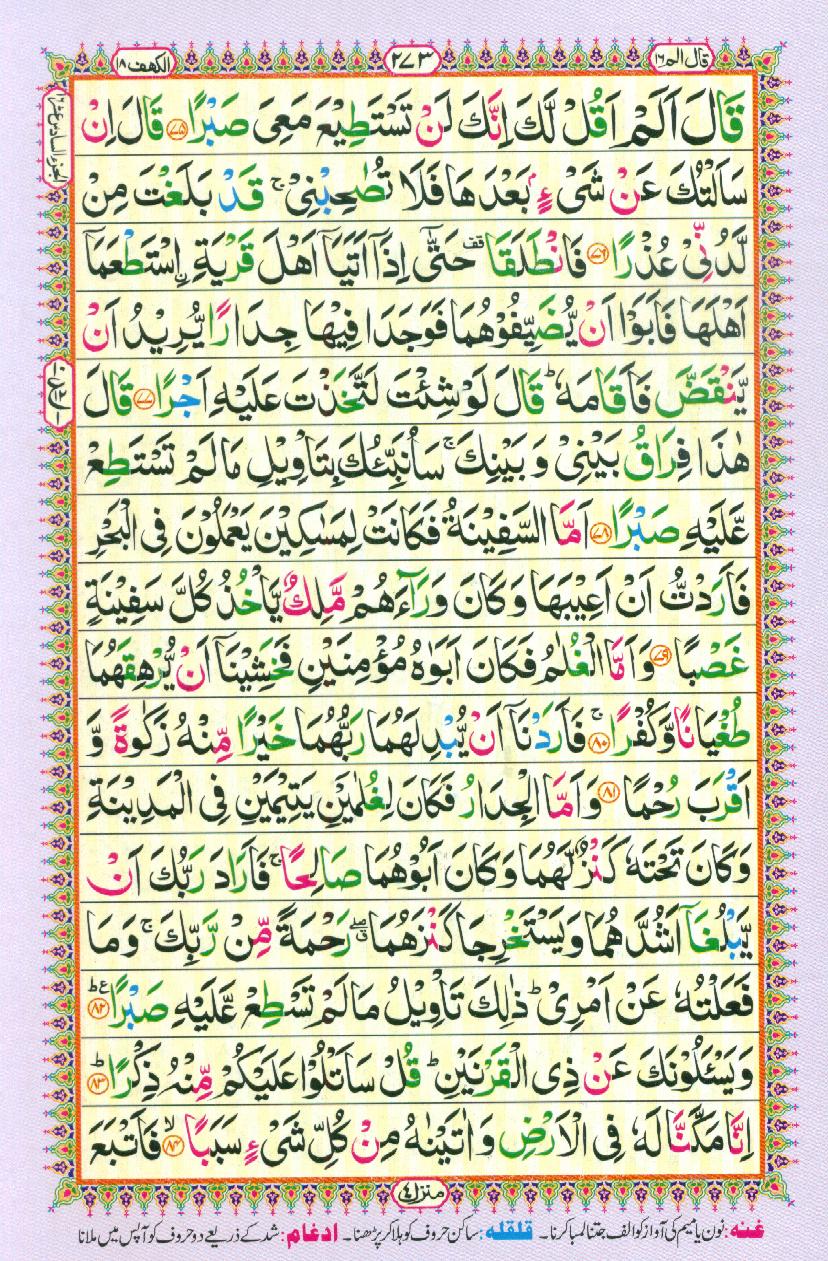 قال الم ١٦
٢٧٣
الكهف ١٨
قَالَ اَلَمْ اَقُلْ لَّكَ اِنَّكَ لَنْ تَسْتَطِيْعَ مَعِيَ صَبْرًا ﴿٧٥﴾ قَالَ اِنْ
سَاَلْتُكَ عَنْ شَيْءٍۭ بَعْدَهَا فَلَا تُصٰحِبْنِيْ ۚ قَدْ بَلَغْتَ مِنْ
لَّدُنِّيْ عُذْرًا ﴿٧٦﴾ فَانْطَلَقَا ۥ قف حَتّٰۤى اِذَاۤ اَتَيَاۤ اَهْلَ قَرْيَةِ ۨاسْتَطْعَمَاۤ
اَهْلَهَا فَاَبَوْا اَنْ يُّضَيِّفُوْهُمَا فَوَجَدَا فِيْهَا جِدَارًا يُّرِيْدُ اَنْ
يَّنْقَضَّ فَاَقَامَهٗ ؕ قَالَ لَوْ شِئْتَ لَتَّخَذْتَ عَلَيْهِ اَجْرًا ﴿٧٧﴾ قَالَ
هٰذَا فِرَاقُ بَيْنِيْ وَ بَيْنِكَ ۚ سَاُنَبِّئُكَ بِتَاْوِيْلِ مَا لَمْ تَسْتَطِعْ
عَّلَيْهِ صَبْرًا ﴿٧٨﴾ اَمَّا السَّفِيْنَةُ فَكَانَتْ لِمَسٰكِيْنَ يَعْمَلُوْنَ فِي الْبَحْرِ
فَاَرَدْتُّ اَنْ اَعِيْبَهَا وَكَانَ وَرَآءَهُمْ مَّلِكٌ يَّاْخُذُ كُلَّ سَفِيْنَةٍ
غَصْبًا ﴿٧٩﴾ وَاَمَّا الْغُلٰمُ فَكَانَ اَبَوٰهُ مُؤْمِنَيْنِ فَخَشِيْنَاۤ اَنْ يُّرْهِقَهُمَا
طُغْيَانًا وَّكُفْرًا ۚ ﴿٨٠﴾ فَاَرَدْنَاۤ اَنْ يُّبْدِلَهُمَا رَبُّهُمَا خَيْرًا مِّنْهُ زَكٰوةً وَّ
اَقْرَبَ رُحْمًا ﴿٨١﴾ وَاَمَّا الْجِدَارُ فَكَانَ لِغُلٰمَيْنِ يَتِيْمَيْنِ فِي الْمَدِيْنَةِ
وَكَانَ تَحْتَهٗ كَنْزٌ لَّهُمَا وَكَانَ اَبُوْهُمَا صَالِحًا ۚ فَاَرَادَ رَبُّكَ اَنْ
يَّبْلُغَاۤ اَشُدَّهُمَا وَيَسْتَخْرِجَا كَنْزَهُمَا رَحْمَةً مِّنْ رَّبِّكَ ۚ وَمَا
فَعَلْتُهٗ عَنْ اَمْرِيْ ؕ ذٰلِكَ تَاْوِيْلُ مَا لَمْ تَسْطِعْ عَّلَيْهِ صَبْرًا ؕ ع ﴿٨٢﴾
وَيَسْـَٔلُوْنَكَ عَنْ ذِي الْقَرْنَيْنِ ؕ قُلْ سَاَتْلُوْا عَلَيْكُمْ مِّنْهُ ذِكْرًا ؕ ﴿٨٣﴾
اِنَّا مَكَّنَّا لَهٗ فِي الْاَرْضِ وَاٰتَيْنٰهُ مِنْ كُلِّ شَيْءٍ سَبَبًا ۙ ﴿٨٤﴾ فَاَتْبَعَ
منزل ٤
غنه: نون یا میم کی آواز کو الف جتنا لمبا کرنا۔ قلقله: ساکن حروف کو ہلا کر پڑھنا۔ ادغام: شد کے ذریعے دو حروف کو آپس میں ملانا